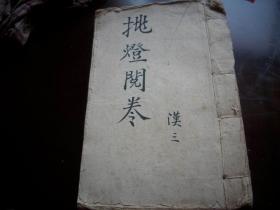 挑燈閱卷
漢三